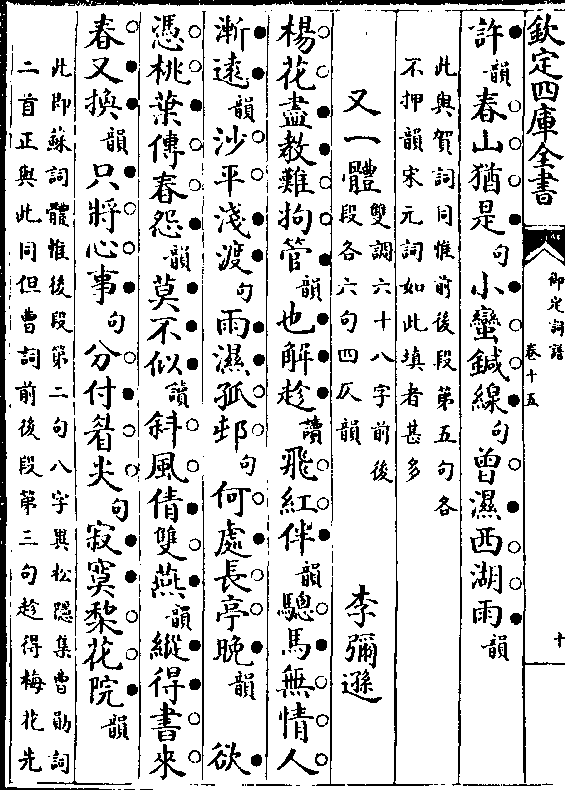 欽定四庫全書
御定詞譜
卷十五
十
許韻春山猶是句小蠻鍼線句曾濕西湖雨韻
此與賀詞同惟前後段第五句各
不押韻宋元詞如此填者甚多
又一體雙調六十八字前後
段各六句四仄韻
李彌遜
楊花盡教難拘管韻也解趁讀飛紅伴韻驄馬無情人
漸遠韻沙平淺渡句雨濕孤邨句何處長亭晚韻欲
憑桃葉傳春怨韻莫不似讀斜風倩雙燕韻縱得書來
春又換韻只將心事句分付眉尖句寂寞棃花院韻
此即蘇詞體惟後段第二句八字與松隱集曹勛詞
二首正與此同但曹詞前後段第三句趁得梅花先